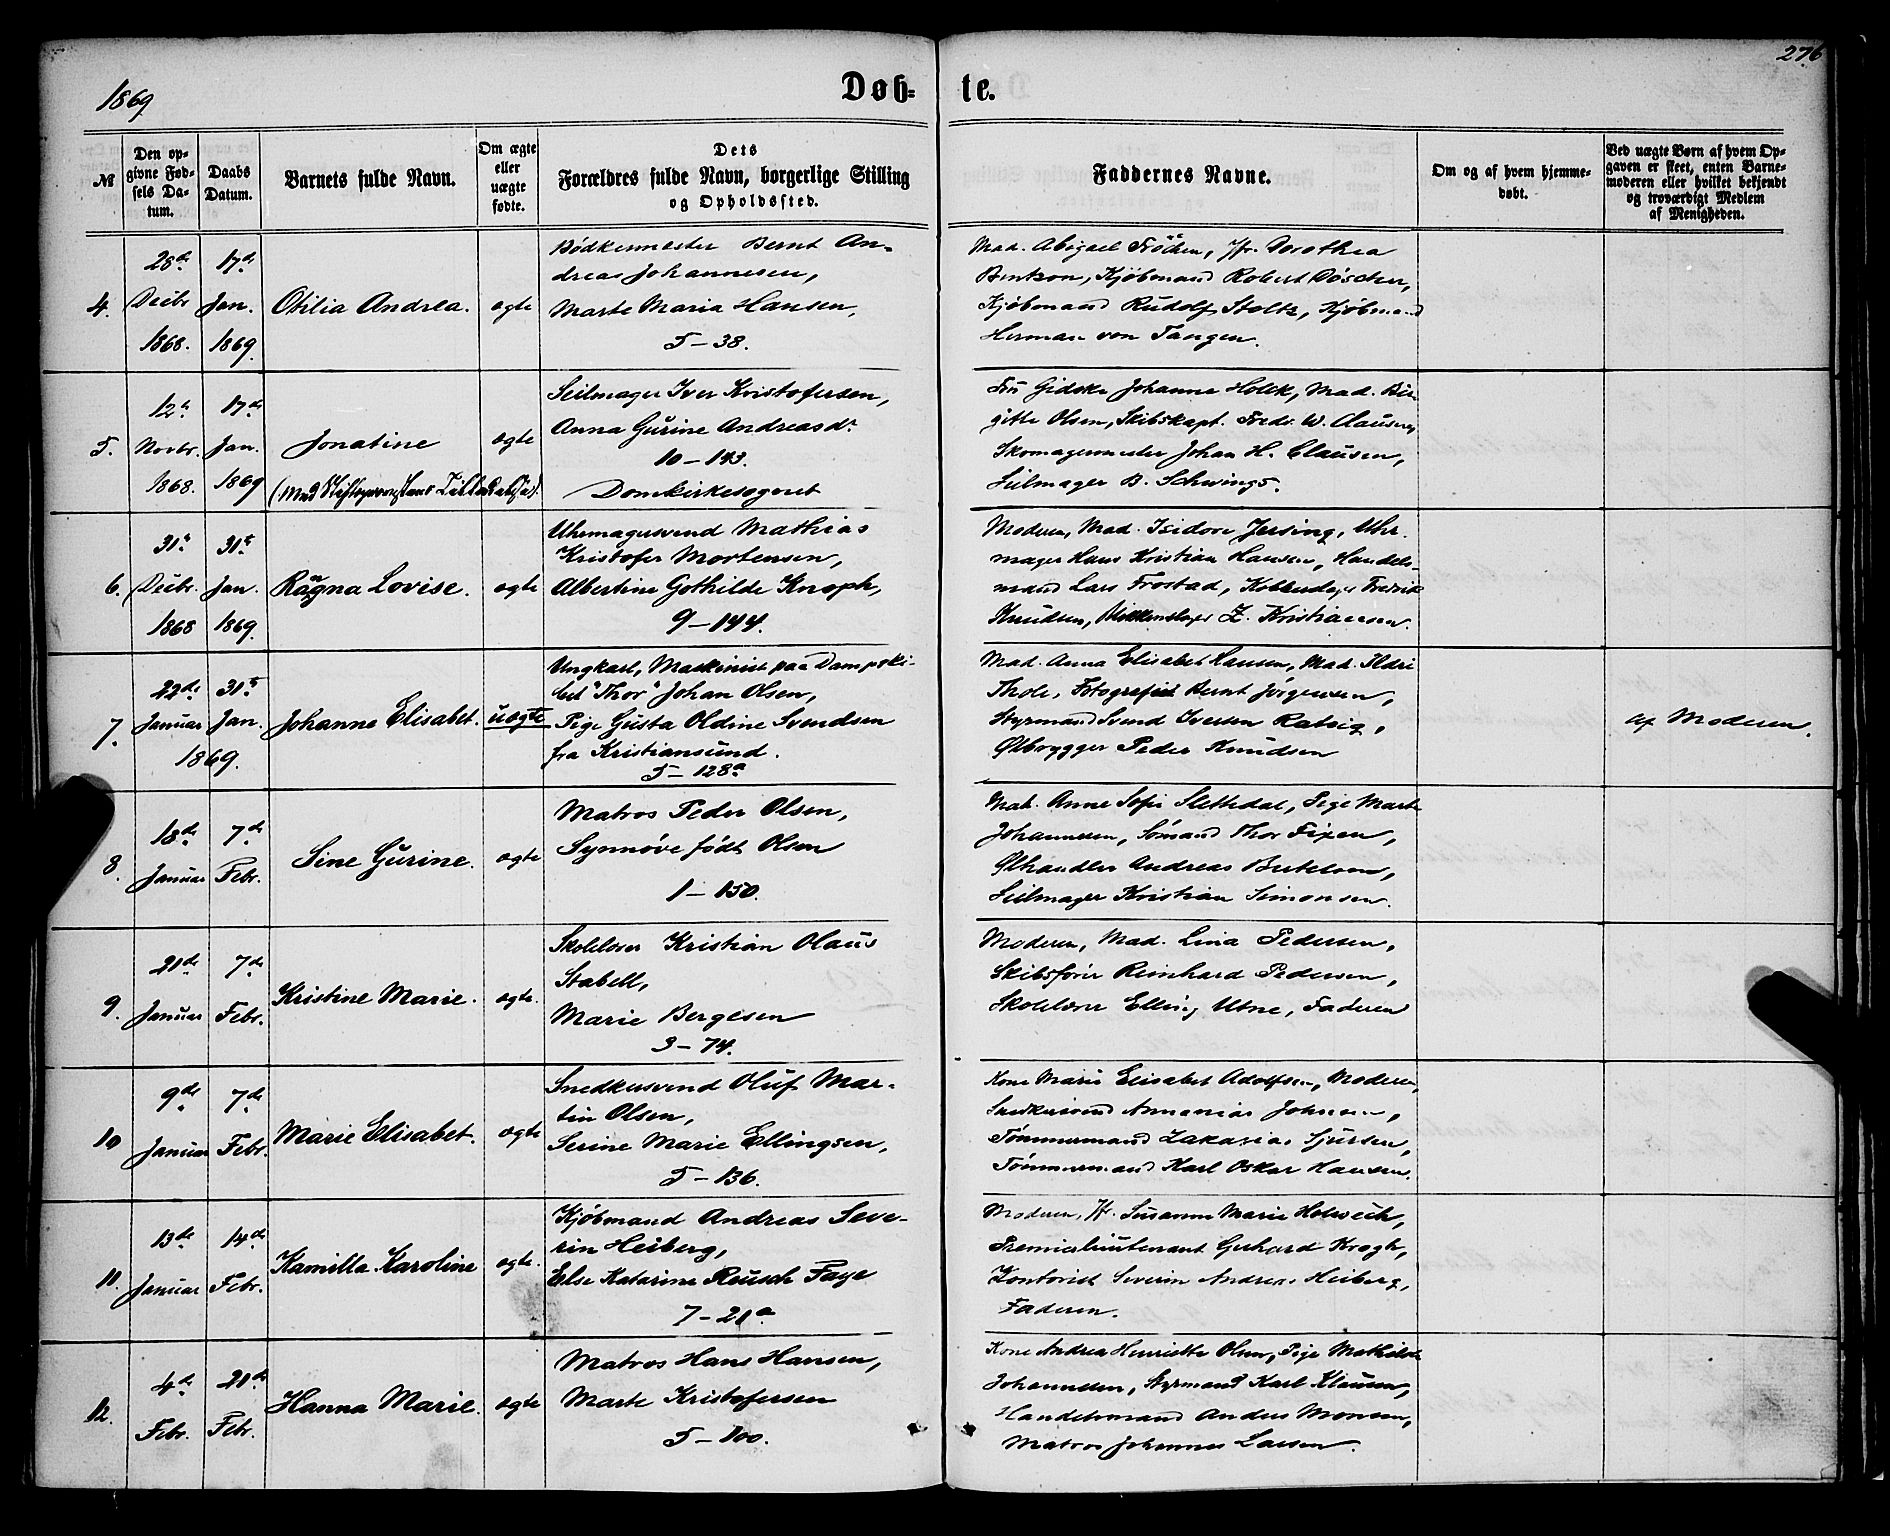 276
1869
Døb-te.
№
Den op-
givne Fød-
sels Da-
tum.
Daabs
Datum.
Barnets fulde Navn.
Om ægte
eller
uægte
fødte.
Dets
Forældres fulde Navn, borgerlige Stilling
og Opholdssted.
Faddernes Navne.
Om og af hvem hjemme-
døbt.
Ved uægte Børn af hvem Op-
gaven er skeet, enten Barne-
moderen eller hvilket bekjendt
og troværdigt Medlem
af Menigheden.
4.
28de
Decbr
1868.
17de
Jan.
1869.
Otilia Andrea.
ægte
Bödkermester Bernt An-
dreas Johannesen,
Marte Maria Hansen,
5-38.
Mad. Abigael Fröchen, Jfr. Dorothea
Berntson, Kjöbmand Robert Döscher,
Kjöbmand Rudolf Stoltz, Kjöbmand
Herman von Tangen.
5.
12te
Novbr.
1868.
17de
Jan.
1869
Jonatine
ægte
Seilmager Iver Kristofersen,
Anna Gurine Andreasdr
10-143.
Domkirkesognet
Fru Gidske Johanne Holck, Mad. Bir-
gitte Olsen, Skibskapt. Fredr. W. Clausen,
Skomagermester Johan H. Clausen,
Seilmager B. Schwings.
6.
31te
Decbr.
1868
31te
Jan.
1869.
Ragna Lovise.
ægte
Uhrmagersvend Mathias
Kristofer Mortensen,
Albertine Gothilde Knoph,
9-144.
Moderen, Mad. Isidore Jersing, Uhr-
mager Hans Kristian Hansen, Handels-
mand Lars Frostad, Kobberslager Fredrik
Knudsen, Blikkenslager Z. Kristiansen.
7.
22de
Januar
31te
Jan.
1869.
Johanne Elisabet.
uægte
Ungkarl, Maskinist paa Dampski-
bet "Thor" Johan Olsen,
Pige Gusta Oldine Svendsen
fra Kristiansund.
5-128a
Mad. Anna Elisabet Hansen, Mad. Ildri
Thole, Fotografist Bernt Jörgensen,
Styrmand Svend Iversen Ratvig,
Ölbrygger Peder Knudsen
af Moderen.
8.
18de
Januar
7de
Febr.
Sine Gurine.
ægte
Matros Peder Olsen,
Synnöve födt Olsen
1-150.
Mad. Anne Sofie Slettedal, Pige Marte
Johannesen, Sömand Thor Fixen,
Ölhandler Andreas Bertelsen,
Seilmager Kristian Simonsen.
9.
21de
Januar
7de
Febr.
Kristine Marie.
ægte.
Skolelærer Kristian Olaus
Stabell,
Marie Bergesen
3-74.
Moderen, Mad. Lina Pedersen,
Skibsförer Reinhard Pedersen,
Skolelærer Elling Utne, Faderen
10
9de
Januar
7de
Febr.
Marie Elisabet.
ægte
Snedkersvend Oluf Mar-
tin Olsen,
Serine Marie Ellingsen,
5-136.
Kone Marie Elisabet Adolfsen, Moderen,
Snedkersvend Annanias Johnsen,
Tömmermand Zakarias Sjursen,
Tömmermand Karl Oskar Hansen.
11.
13de
Januar
14de
Febr.
Kamilla Karoline
ægte.
Kjöbmand Andreas Seve-
rin Heiberg,
Else Katarine Reusch Faye
7-21a
Moderen, Jfr. Susanne Marie Holweck,
Premierlieutenant Gerhard Krogh,
Kontorist Severin Andreas Heiberg,
Faderen.
12.
4de
Febr.
21de
Febr.
Hanna Marie.
ægte
Matros Hans Hansen,
Marte Kristofersen
5-100.
Kone Andrea Henriette Olsen, Pige Mathilde
Johannesen, Styrmand Karl Klausen,
Handelsmand Anders Monsen,
Matros Johannes Larsen.